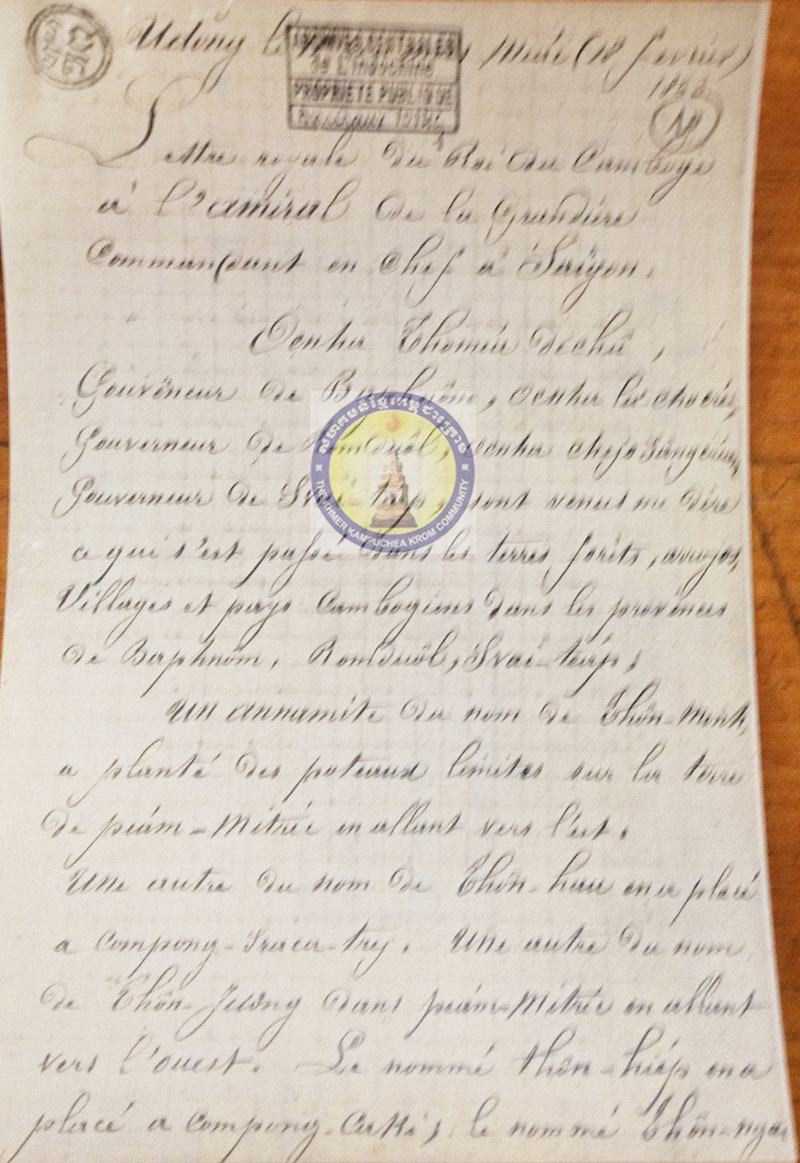 Udông
Meác (18 février)
ARCHIVES CENTRALES
de L'Indochine
PROPRIÉTÉ PUBLIQUE
Lettre royale du Roi du Camboge
à l'amiral de la Grandière
Commandant en chef à Saïgon.
Oenha Thoméa dechû,
Gouverneur de Baphnôm, oenha
Gouverneur de Romduôl, oenha
Gouverneur de Svai-teáp, sont venus me dire
ce qui s'est passé dans les terres, forêts, arroyos,
Villages et pays Cambogiens dans les provinces
de Baphnôm, Romduôl, Svai-teáp,
Un annamite du nom de Thôn-Minh,
a planté des poteaux limites sur la terre
de peám-Métrée en allant vers l'est.
Une autre du nom de Thôn-hau en a placé
a compong-Sracu-trey. Une autre du nom
de Thôn-Juông dans peám-Métrée en allant
vers l'ouest. Le nommé thôn-hiép en a
placé a compong-Cakki, le nommé Thôn-ngai
THE KHMER KAMPUCHEA KROM COMMUNITY